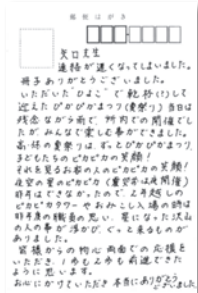 郵便はがき
矢口先生
連絡が遅くなってしまいました。
冊子ありがとうございました。
いただいた"ひよこ"で乾杯(?)して
迎えたぴかぴかまつり(夏祭り)当日は
残念ながら雨で、所内での開催でし
たが、みんなで楽しむ事ができました。
の夏祭りは、ずっとぴかぴかまつり。
子どもたちのピカピカの笑顔!
それを見るお客の人のピカピカの笑顔!
夜空の星のピカピカ(
はできなかったので、
ピカピカタワーやおみこし入場の時は
の思い、星になった沢山
の人の事が浮かび、ぐっと来るものが
ありました。
皆様からの物心両面での応援を
いただき、1歩も2歩も前進できた
ように思います。
お心にかけていただき 本当にありがとう
ございました。